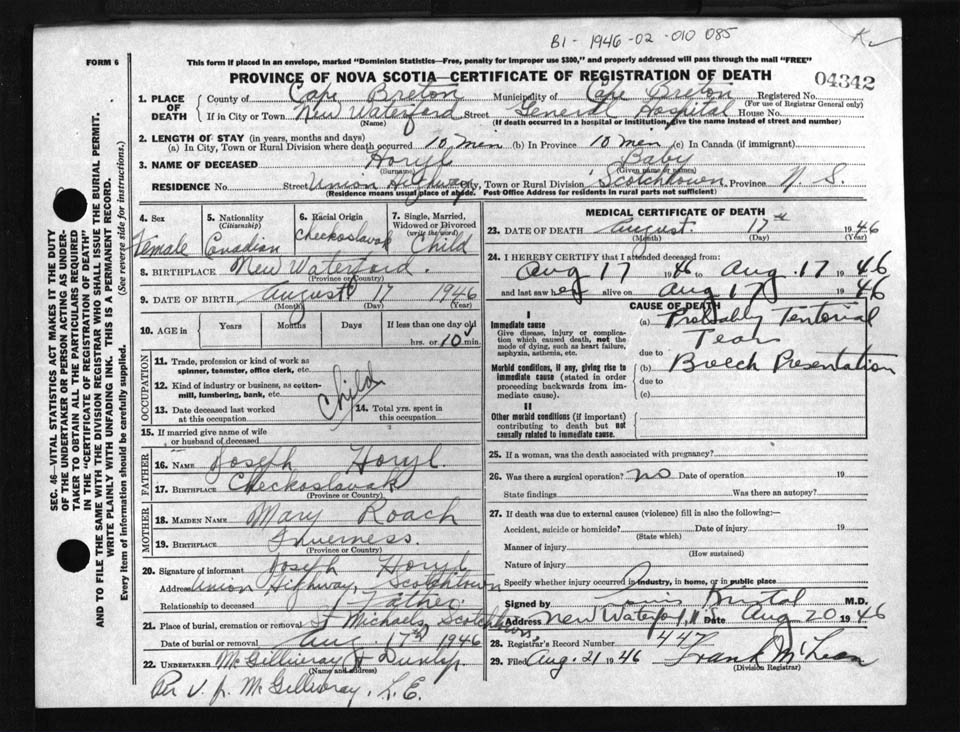 B1 - 1946 - 02 - 010 085
FORM 6
This form if placed in an envelope, marked "Dominion Statistics—Free, penalty for improper use $300," and properly addressed will pass through the mail "FREE"
PROVINCE OF NOVA SCOTIA—CERTIFICATE OF REGISTRATION OF DEATH
04342
1. PLACE OF DEATH
County of Cape Breton Municipality of Cape Breton Registered No.
(For use of Registrar General only)
If in City or Town New Waterford Street General Hospital House No.
(Name) (If death occurred in a hospital or institution, give the name instead of street and number)
2. LENGTH OF STAY (in years, months and days)
(a) In City, Town or Rural Division where death occurred 10 Min (b) In Province 10 Min (c) In Canada (if immigrant)
3. NAME OF DECEASED Horyl Baby
(Surname) (Given name or names)
RESIDENCE No. Street Union Highway City, Town or Rural Division Scotchtown, Province N. S.
(Residence means usual place of abode. Post Office Address for residents in rural parts not sufficient)
4. Sex
Female
5. Nationality
(Citizenship)
Canadian
6. Racial Origin
Checkoslovak
7. Single, Married, Widowed or Divorced
(write the word)
Child
8. BIRTHPLACE New Waterford.
(Province or Country)
9. DATE OF BIRTH August 17 1946
(Month) (Day) (Year)
10. AGE in Years Months Days If less than one day old
hrs. or 10 min.
OCCUPATION
11. Trade, profession or kind of work as spinner, teamster, office clerk, etc.
12. Kind of industry or business, as cotton-mill, lumbering, bank, etc.
Child
13. Date deceased last worked at this occupation
14. Total yrs. spent in this occupation
15. If married give name of wife or husband of deceased
FATHER
16. NAME Joseph Horyl.
17. BIRTHPLACE Checkoslavak
(Province or Country)
MOTHER
18. MAIDEN NAME Mary Roach
19. BIRTHPLACE Inverness.
(Province or Country)
20. Signature of informant Joseph Horyl
Address Union Highway, Scotchtown
Relationship to deceased Father.
21. Place of burial, cremation or removal St Michaels Scotchtown.
Date of burial or removal Aug. 17th 1946
22. UNDERTAKER McGillivray & Dunlop.
(Name and Address)
Per J. McGillivray, L.E.
MEDICAL CERTIFICATE OF DEATH
23. DATE OF DEATH August. 17th 1946
(Month) (Day) (Year)
24. I HEREBY CERTIFY that I attended deceased from:
Aug 17 1946 to Aug. 17 1946
and last saw her alive on Aug 17 1946
CAUSE OF DEATH
I
Immediate cause
Give disease, injury or complication which caused death, not the mode of dying, such as heart failure, asphyxia, asthenia, etc.
(a) Probably Tentorial Tear
due to
Morbid conditions, if any, giving rise to immediate cause (stated in order proceeding backwards from immediate cause).
(b) Breech Presentation
due to
(c)
II
Other morbid conditions (if important) contributing to death but not causally related to immediate cause.
25. If a woman, was the death associated with pregnancy?
26. Was there a surgical operation? no Date of operation 19
State findings Was there an autopsy?
27. If death was due to external causes (violence) fill in also the following:—
Accident, suicide or homicide? Date of injury 19
(State which)
Manner of injury
(How sustained)
Nature of injury
Specify whether injury occurred in industry, in home, or in public place
Signed by Bristol M.D.
Address New Waterford, N.S. Date Aug 20 1946
28. Registrar's Record Number 447
29. Filed Aug. 21 1946 Frank McLean
(Division Registrar)
SEC. 46—VITAL STATISTICS ACT MAKES IT THE DUTY
OF THE UNDERTAKER OR PERSON ACTING AS UNDER-
TAKER TO OBTAIN ALL THE PARTICULARS REQUIRED
IN THE "CERTIFICATE OF REGISTRATION OF DEATH"
AND TO FILE THE SAME WITH THE DIVISION REGISTRAR WHO SHALL ISSUE THE BURIAL PERMIT.
WRITE PLAINLY WITH UNFADING INK. THIS IS A PERMANENT RECORD.
Every item of information should be carefully supplied. (See reverse side for instructions.)